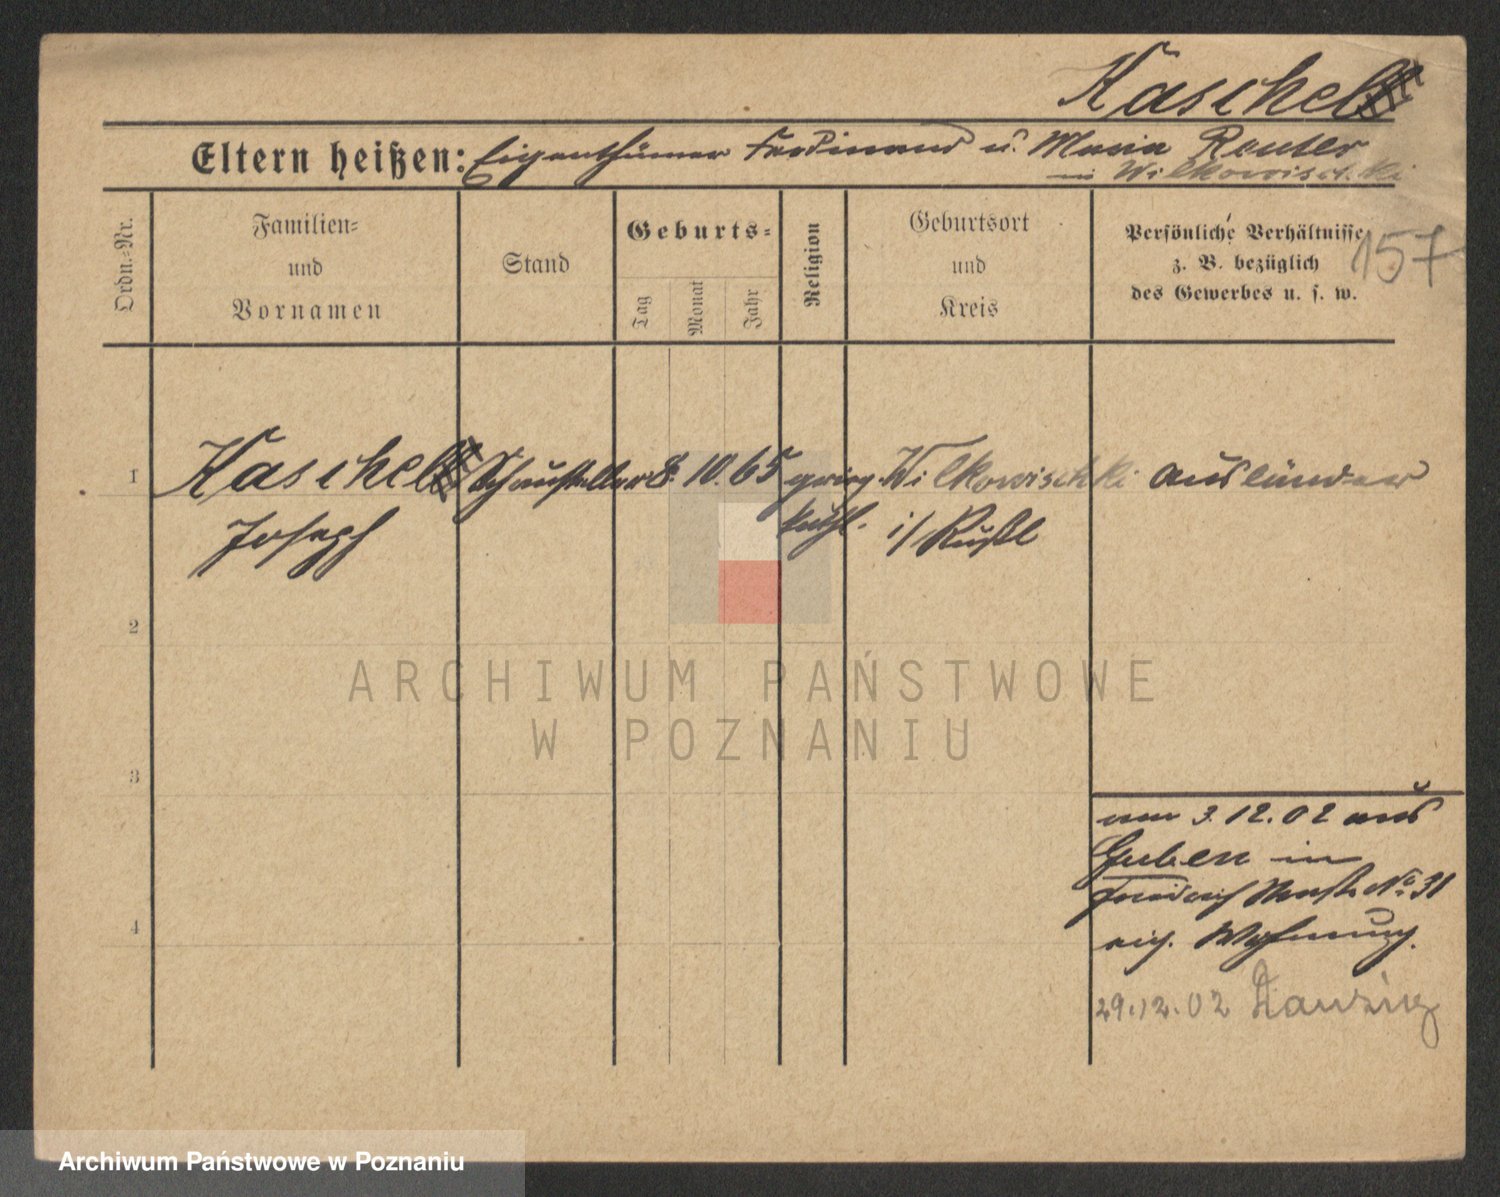 Kaschel
Eltern heißen: Eigenthümer Ferdinand u. Maria Reuter
in Wilkowischki
157
Ordn.-Nr.
Familien-
und
Vornamen
Stand
Geburts-
Tag
Monat
Jahr
Religion
Geburtsort
und
Kreis
Persönliche Verhältnisse
z. B. bezüglich
des Gewerbes u. s. w.
1 Kaschel Schausteller 8. 10. 65 griech. Wilkowischki Ausländer
Joseph kath. i/ Rußl
2
3
4
ARCHIWUM PAŃSTWOWE
W POZNANIU
am 3.12.02 aus
Guben in
No 31
eig. Wohnung.
29.12.02 Danzig
Archiwum Państwowe w Poznaniu